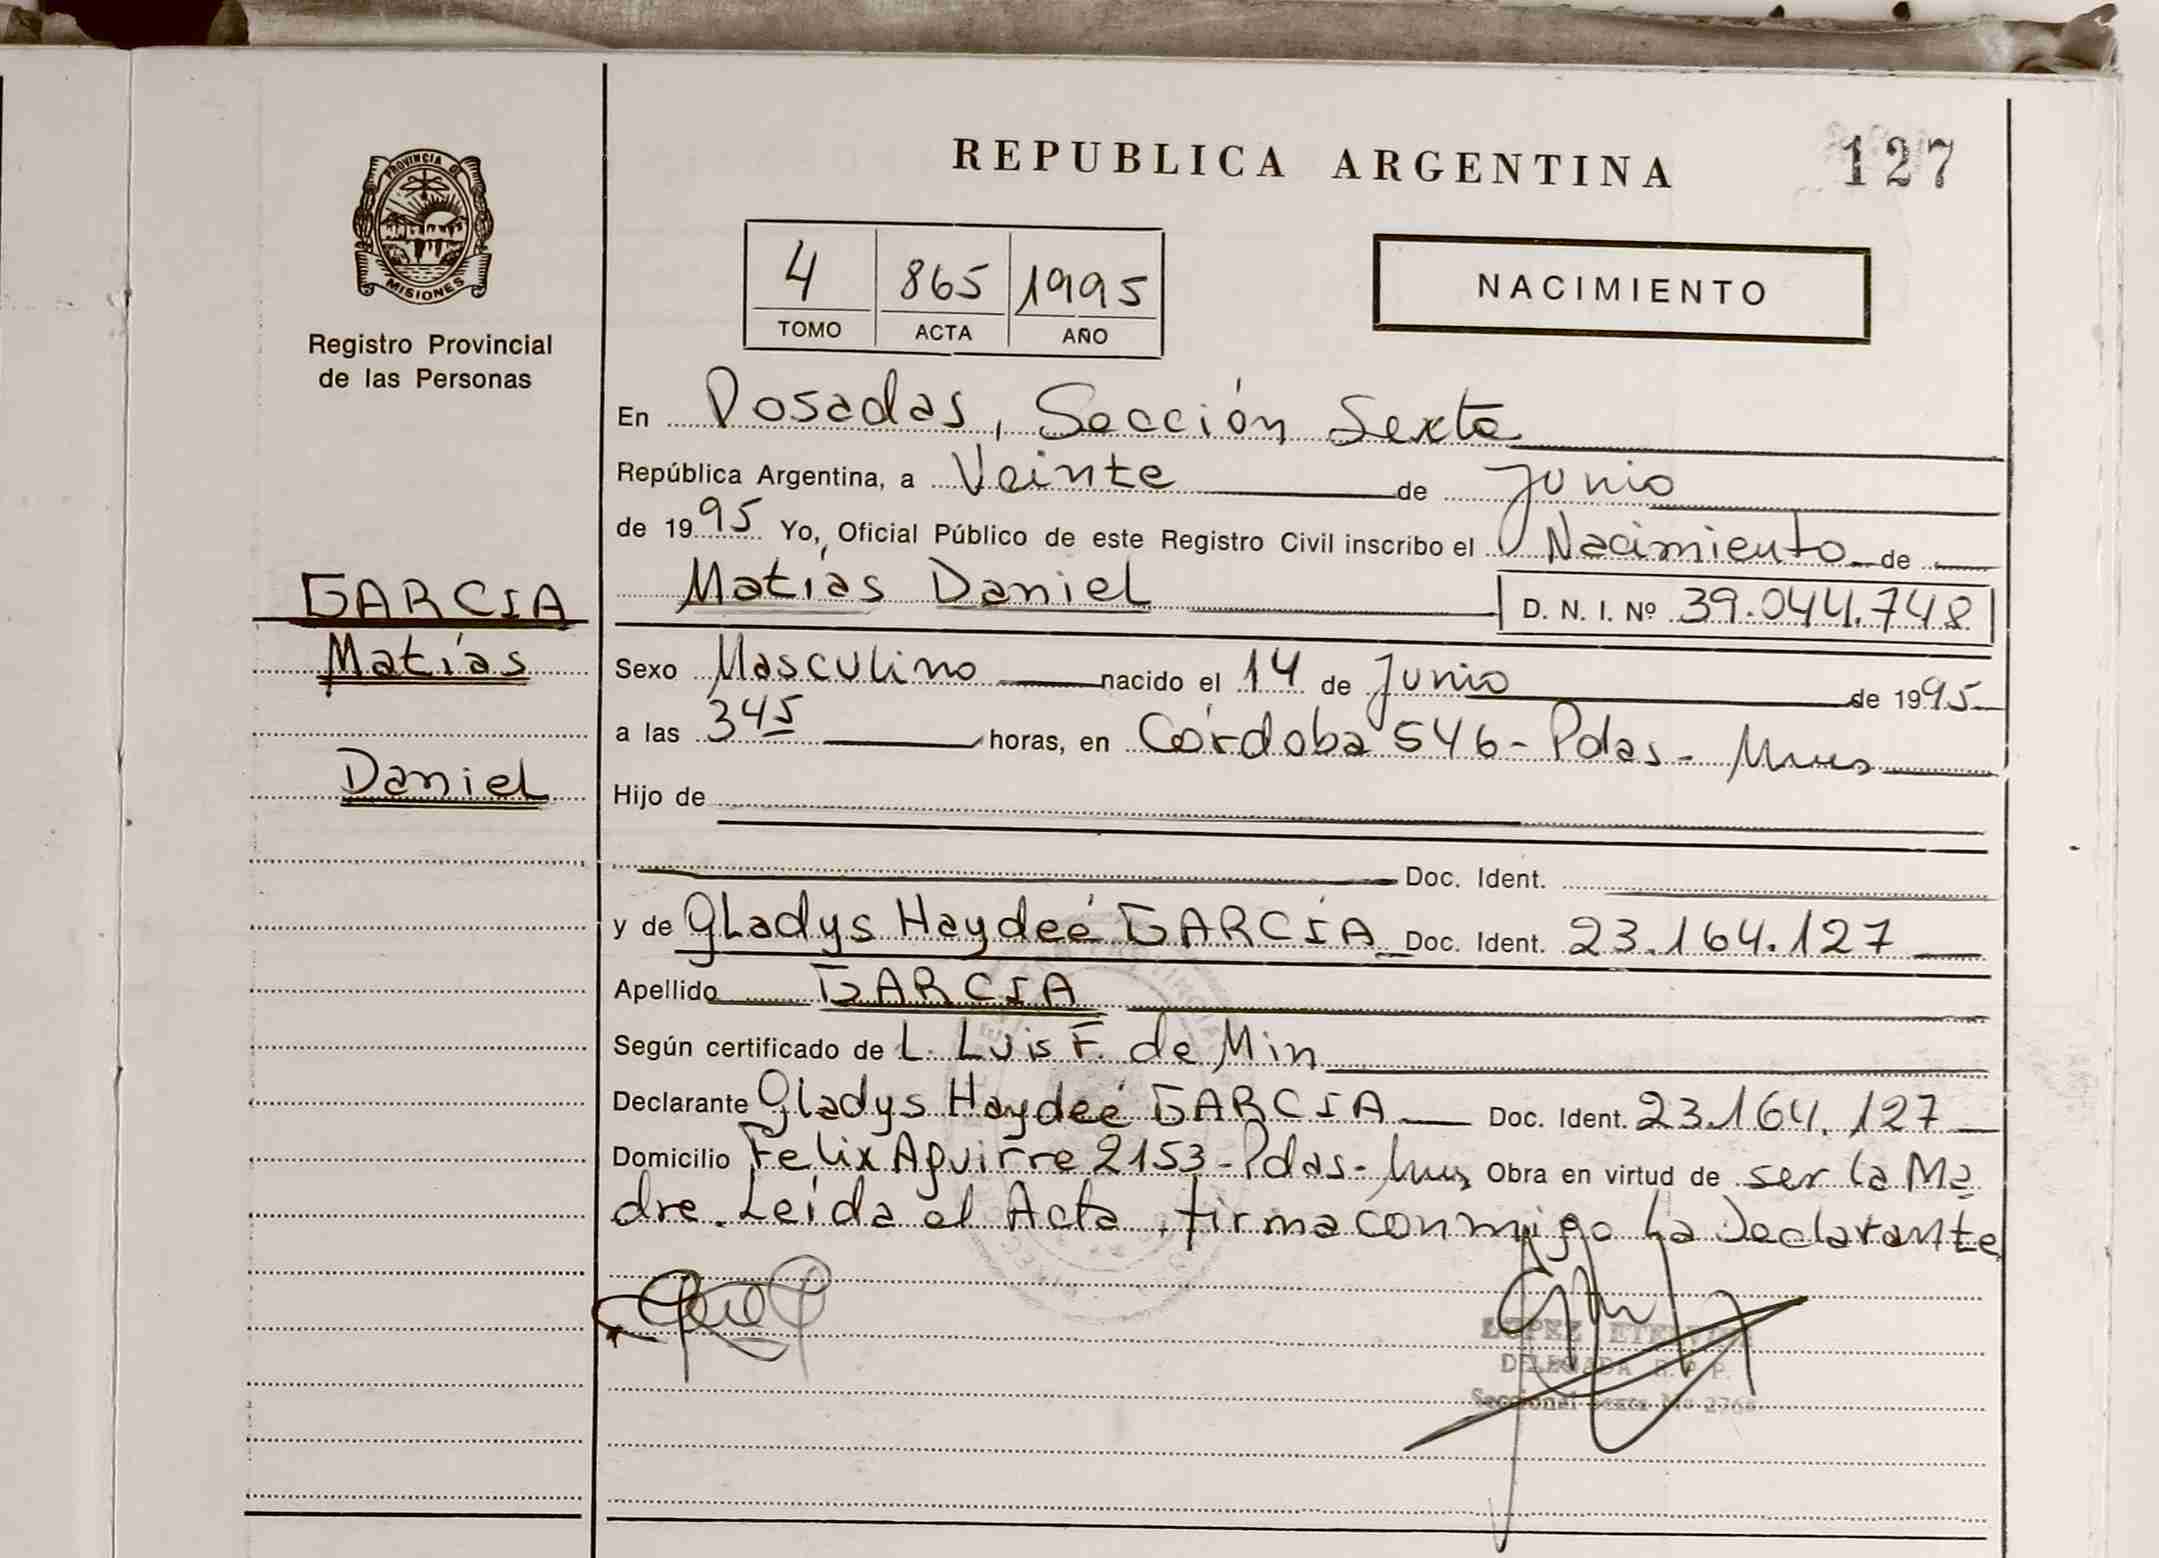 REPUBLICA ARGENTINA
127
PROVINCIA DE
MISIONES
Registro Provincial
de las Personas
4 865 1995
TOMO ACTA AÑO
NACIMIENTO
En Posadas, Sección Sexta
República Argentina, a Veinte de Junio
de 1995 Yo, Oficial Público de este Registro Civil inscribo el Nacimiento de
Matías Daniel D. N. I. Nº 39.044.748
GARCIA
Matías
Daniel
Sexo Masculino nacido el 14 de Junio de 1995
a las 345 horas, en Córdoba 546 - Pdas - Mnes
Hijo de
Doc. Ident.
y de Gladys Haydeé GARCÍA Doc. Ident. 23.164.127
Apellido GARCIA
Según certificado de L. Luis F. de Min
Declarante Gladys Haydeé GARCIA Doc. Ident. 23.164.127
Domicilio Felix Aguirre 2153 - Pdas - Mnes Obra en virtud de ser la Ma
dre. Leída el Acta, firma conmigo La Declarante
LOPEZ
DELEGADA R. P. P.
Seccional Sexta